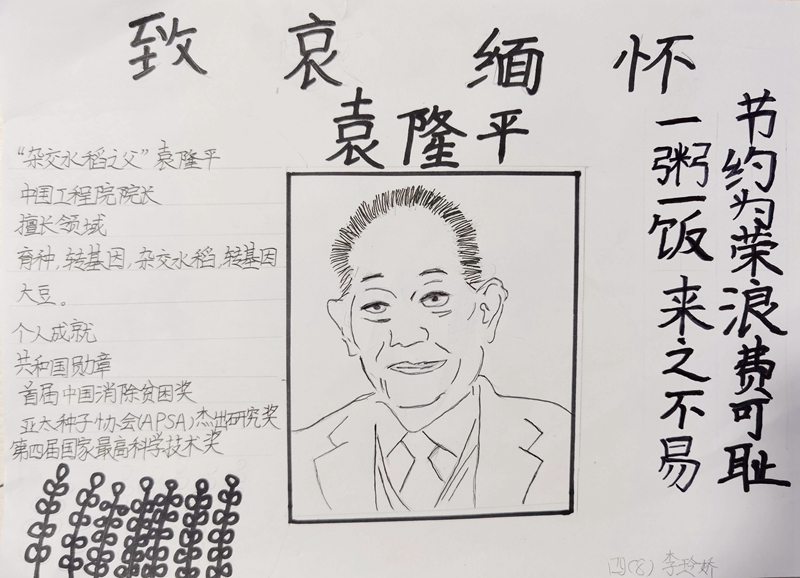 致哀 缅怀
袁隆平
节约为荣浪费可耻
一粥一饭来之不易
“杂交水稻之父”袁隆平
中国工程院院长
擅长领域
育种，转基因，杂交水稻，转基因
大豆。
个人成就
共和国勋章
首届中国消除贫困奖
亚太种子协会(APSA)杰出研究奖
第四届国家最高科学技术奖
李玲娇